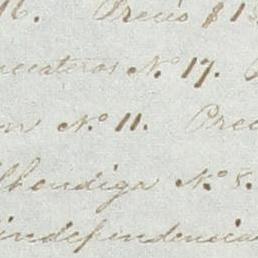 16. Precio $ 1
N.º 17.
N.º 11. Prec
lhondiga N.º 8.
independencia